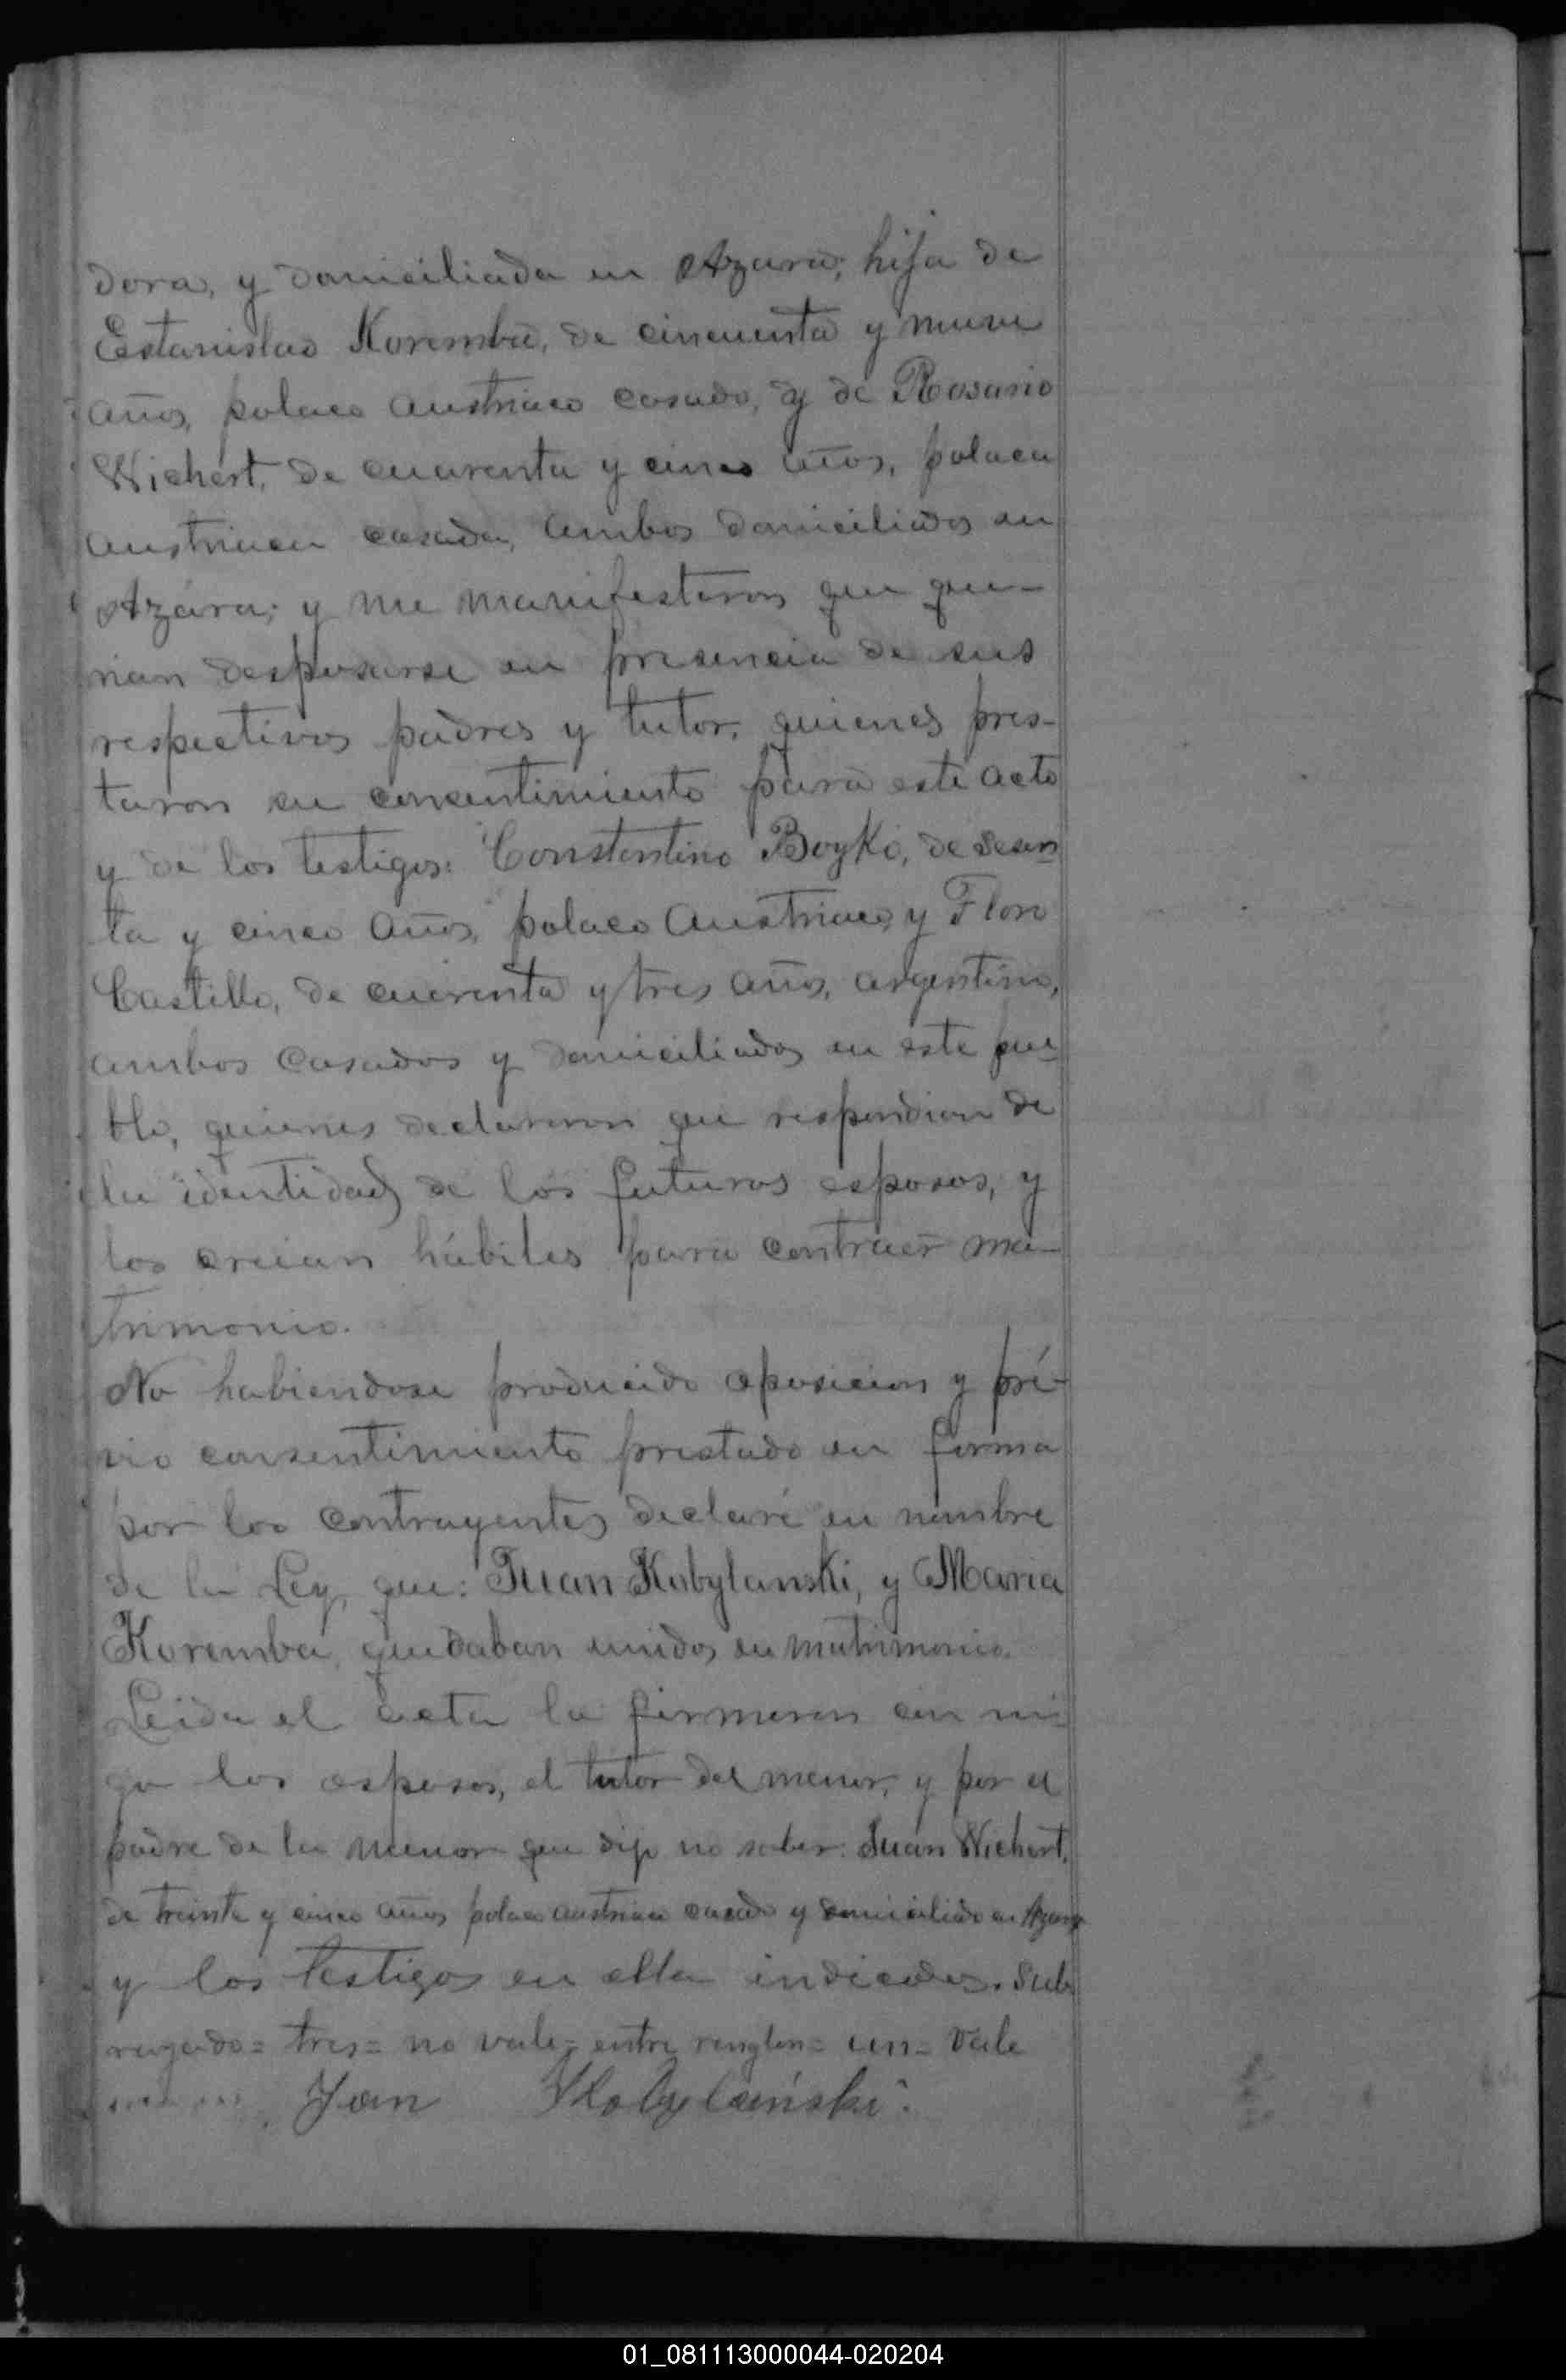 dora, y domiciliada en Azara; hija de
Estanislao Koremba, de cincuenta y nueve
años, polaco austriaco casado, y de Rosario
Wichert, de cuarenta y cinco años, polaca
austriaca casada, ambos domiciliados en
Azara; y me manifestaron que que-
rian desposarse en presencia de sus
respectivos padres y tutor, quienes pres-
taron su consentimiento para este acto
y de los testigos: Constantino Boyko, de sesen
ta y cinco años, polaco austriaco, y Flor
Castillo, de cuarenta y tres años, argentino,
ambos casados y domiciliados en este pue
blo, quienes declararon que respondian de
la identidad de los futuros esposos, y
los creian hábiles para contraer ma-
trimonio.
No habiendose producido oposicion y pré-
vio consentimiento prestado en forma
por los contrayentes declaré en nombre
de la Ley, que: Juan Kobylanski, y Maria
Koremba, quedaban unidos en matrimonio.
Leida el acta la firmaron con mi
go los esposos, el tutor del menor, y por el
padre de la menor que dijo no saber: Juan Wichert,
de treinta y cinco años polaco austriaco casado y domiciliado en Azara
y los testigos en ella indicados. Sub
rayado = tres = no vale; entre renglon = un = vale
Jan Kobylański.
01_081113000044-020204